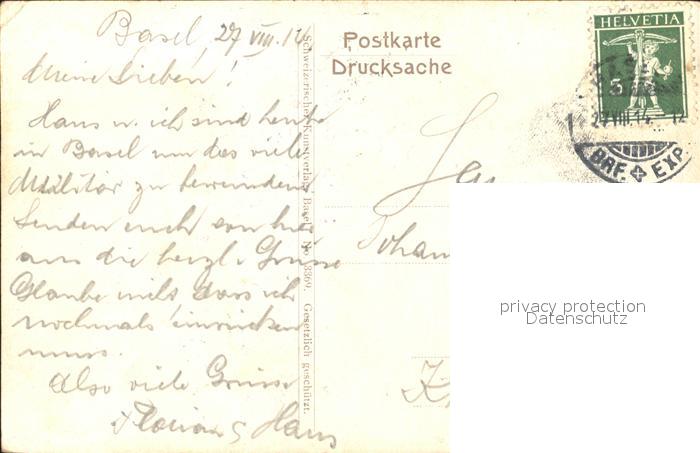 Basel, 27 VIII. 14
Meine Lieben!
Hans u. ich sind heute
in Basel um das viele
Militär zu bewundern
Senden euch von hier
aus die herzl. Grüsse
Glaube nicht dass ich
nochmals einrücken
muss.
Also viele Grüsse
Florian & Hans
Schweizerischer Kunstverlag Basel. No. 3369. Gesetzlich geschützt.
Postkarte
Drucksache
HELVETIA
5
27.VIII.14. 12
BRF. EXP.
Johan
privacy protection
Datenschutz